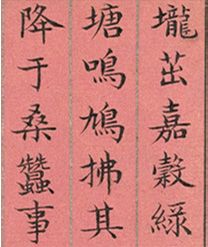 壠茁嘉穀綠
塘鳴鳩拂其
降于桑蠶事